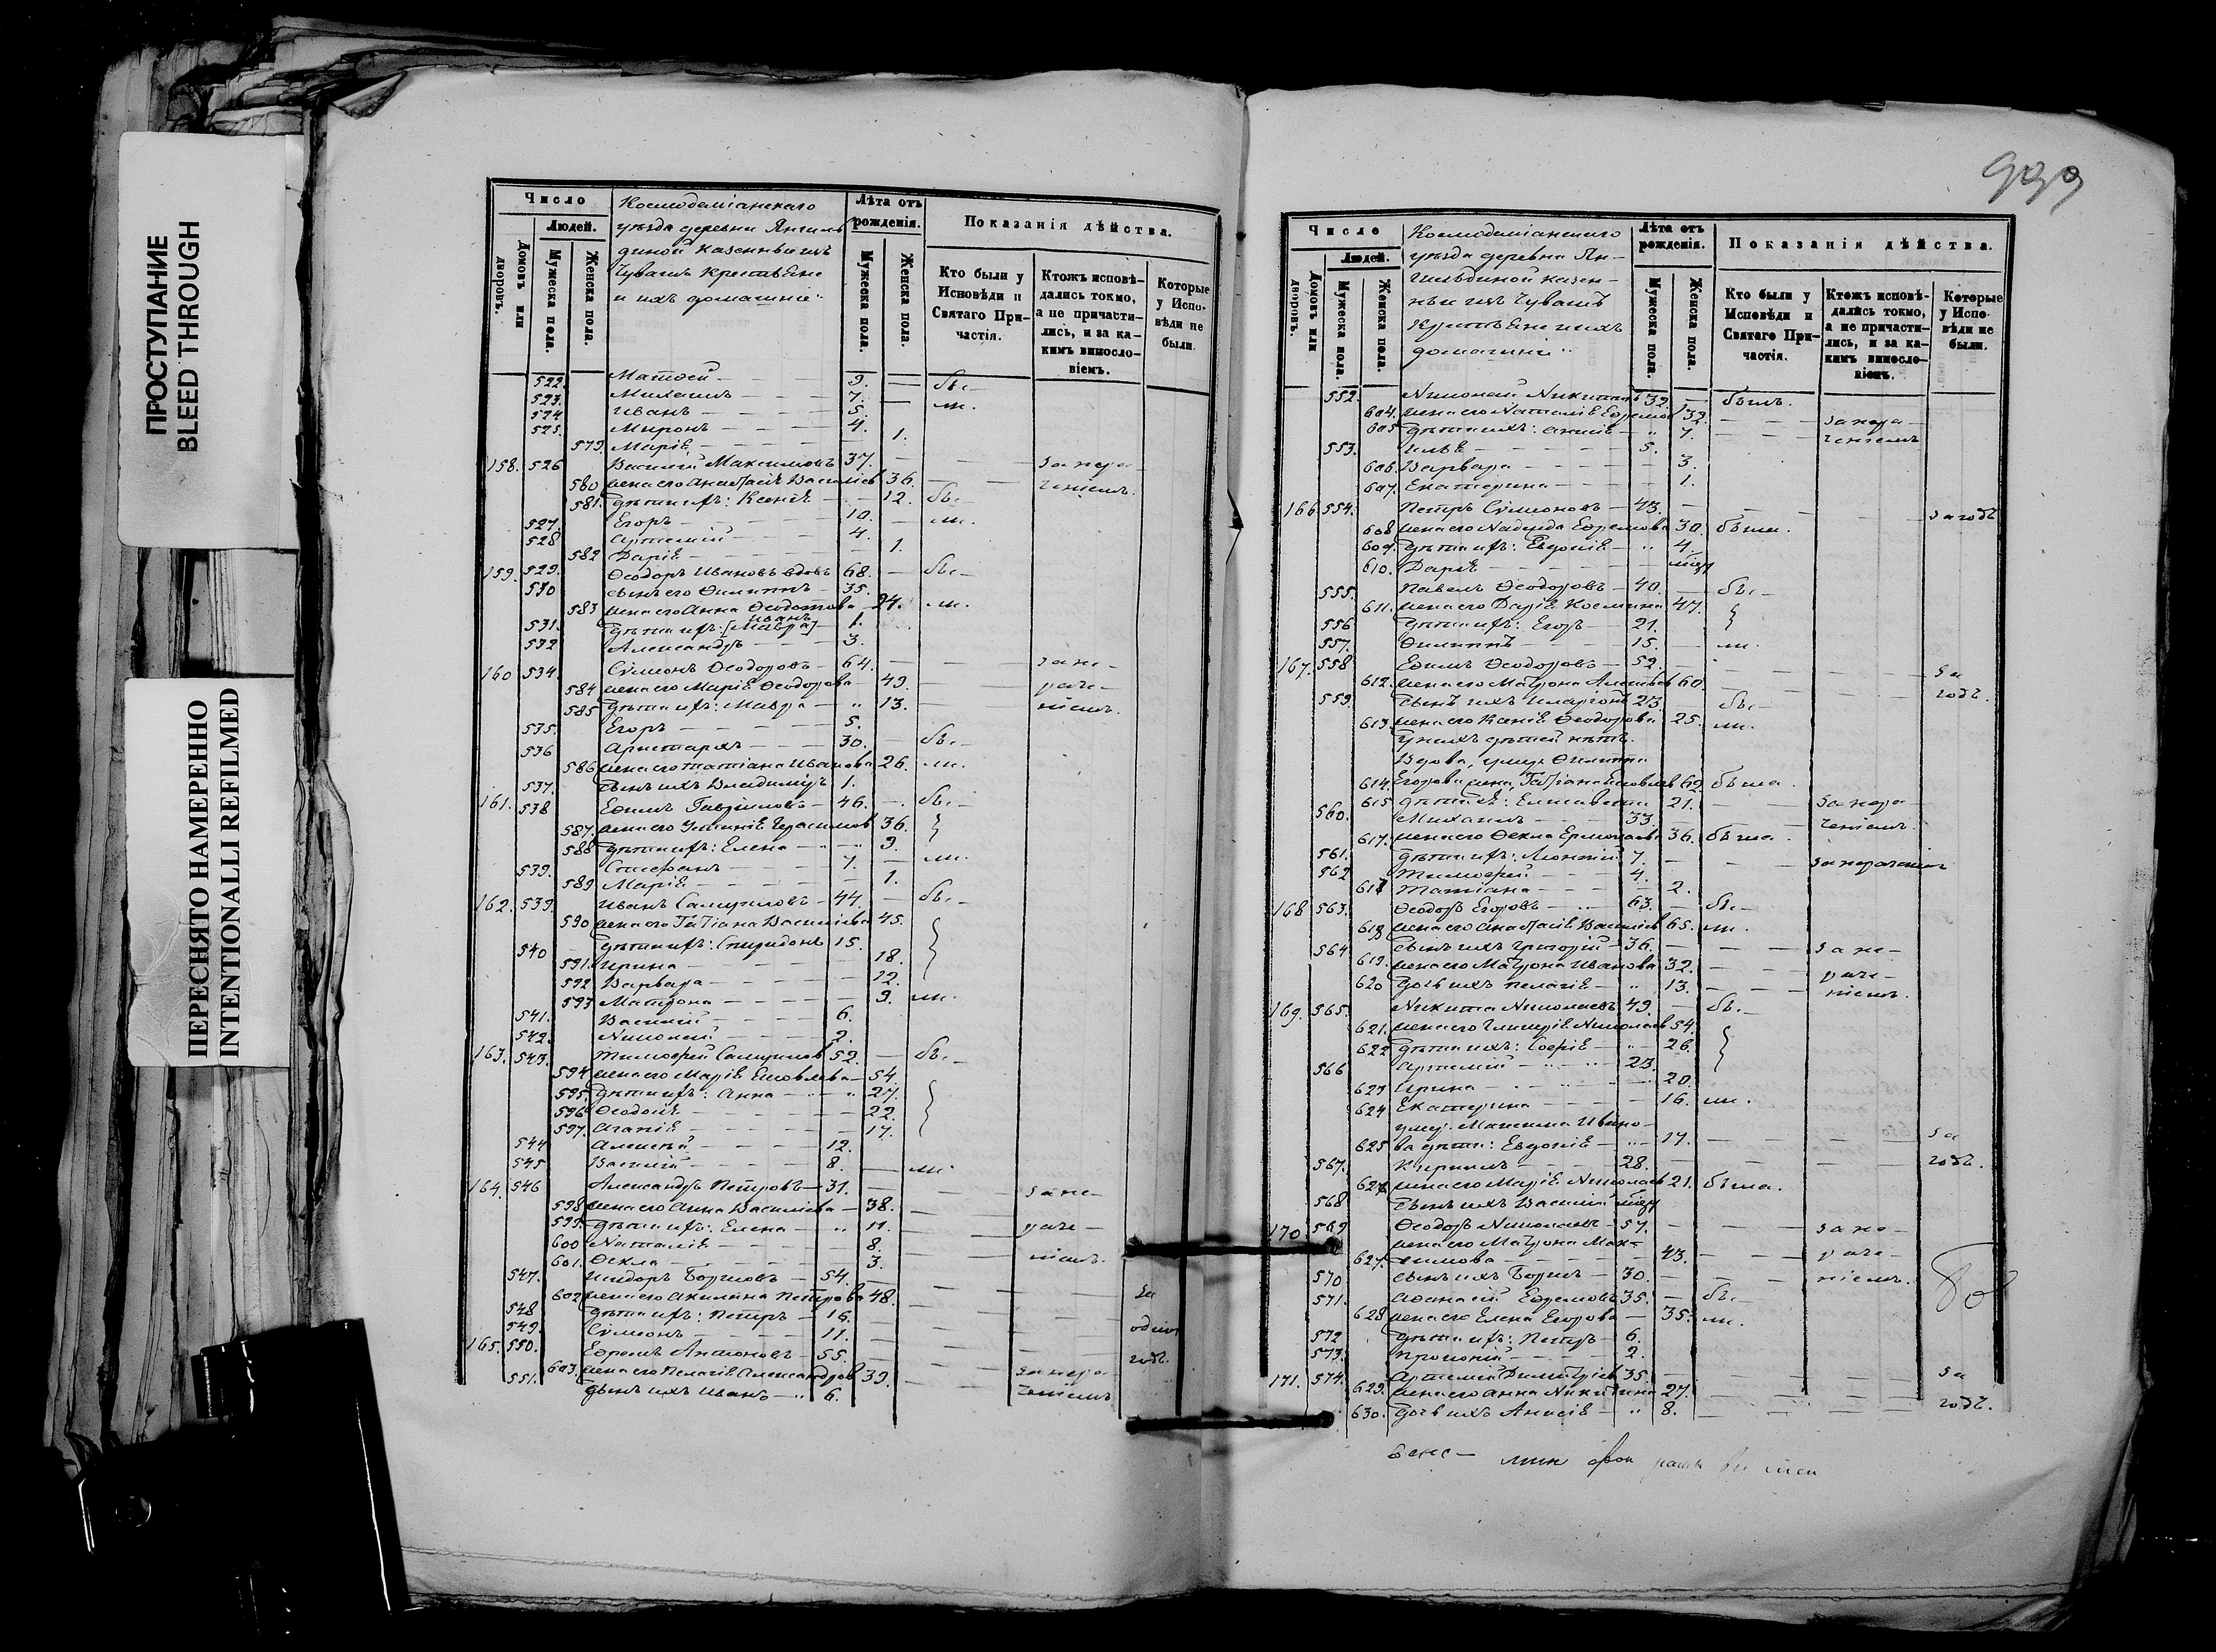 ПРОСТУПАНИЕ
BLEED THROUGH
ПЕРЕСНЯТО НАМЕРЕННО
INTENTIONALLI REFILMED
Число
Людей.
Домовъ или дворовъ.
Мужеска пола.
Женска пола.
Космодемiанскаго
уѣзда деревни Янгиль
диной казенныихъ
Чувашъ Крестьяне
и ихъ домашнiе:
Лѣта отъ рожденiя.
Мужеска пола.
Женска пола.
Показанiя дѣйства.
Кто были у Исповѣди и Святаго Причастiя.
Ктожъ исповѣ-
дались токмо,
а не причасти-
лись, и за ка-
кимъ винословiемъ.
Которые у Исповѣди не были.
522. Матѳей 9. бы-
523. Михаилъ 7.
524 Иванъ 5. ли.
525. Миронъ 4.
579. Марiя 1.
158. 526 Василiй Максимовъ 37. за нера-
580 жена его Анастасiя Васильев 36. ченiемъ.
581. дѣти ихъ: Ксенiя 12. бы-
527. Егоръ 10. ли.
528 Артемiй 4.
582 Дарiя 1.
159. 529. Ѳеодоръ Ивановъ вдовъ 68. бы-
530 сынъ его Филиппъ 35.
583 жена его Анна Ѳедотова 24. ли.
Иванъ
531. дѣти ихъ: [Мавра] 1.
532 Александръ 3.
160 534 Сѵмеонъ Ѳеодоровъ 64. за не-
584 жена его Марiя Ѳеодорова 49. раче-
585 дѣти ихъ: Мавра 13. нiемъ.
535. Егоръ 5.
536 Аристархъ 30. бы-
586 жена его Татiана Иванова 26. ли.
537. сынъ ихъ Владимiръ 1.
161. 538 Ефимъ Гаврiиловъ 46. бы-
587. жена его Устинiя Герасимов 36.
588 дѣти ихъ: Елена 9.
539. Стефанъ 7. ли.
589 Марiя 1.
162. 539. Иванъ Самуиловъ 44. бы-
590 жена его Татiана Васильева 45.
540 дѣти ихъ: Спиридонъ 15.
591. Ирина 18.
592 Варвара 12.
593 Матрона 9. ли.
541. Василiй 6.
542. Николай 2.
163. 543. Тимоѳей Самуилов 52. бы-
594 жена его Марiя Яковлева 54.
595. дѣти ихъ: Анна 27.
596 Ѳеодосiя 22.
597. Агапiя 17.
544 Алексѣй 12.
545 Василiй 8. ли.
164. 546 Александръ Петровъ 31. за не-
598 жена его Анна Васильева 38.
599. дѣти ихъ: Елена 11. раче-
600 Наталiя 8.
601. Ѳекла 3. нiемъ.
547. Исидоръ Борисовъ 54.
602 жена его Акилина Петрова 48. за
548 дѣти ихъ: Петръ 16.
549. Сѵмеонъ 11. одинъ
165. 550. Ефремъ Антоновъ 55. годъ.
603. жена его Пелагiя Александров 39. за нера-
551. сынъ ихъ Иванъ 6. ченiемъ
999
Число
Людей.
Домовъ или дворовъ.
Мужеска пола.
Женска пола.
Космодемiанскаго
уѣзда деревни Ян-
гильдиной казен-
ныихъ Чувашъ
Крестьяне и ихъ
домашнiе:
Лѣта отъ рожденiя.
Мужеска пола.
Женска пола.
Показанiя дѣйства.
Кто были у Исповѣди и Святаго Причастiя.
Ктожъ исповѣ-
дались токмо,
а не причасти-
лись, и за ка-
кимъ винословiемъ.
Которые у Исповѣди не были.
552. Николай Никитинъ 32. былъ.
604. жена его Наталiя Ефремов 32. за нера-
605 дѣти ихъ: 7. ченiемъ
553. Илья 5.
606. Варвара 3.
607. Екатерина 1.
166 554. Петръ Сѵмеоновъ 43. за годъ
608 жена его Надежда Ефремова 30. были.
609. дѣти ихъ: Евдокiя 4.
610. Дарiя
555. Павелъ Ѳеодоровъ 40. бы-
611. жена его Дарiя Космина 47.
556 дѣти ихъ: Егоръ 21.
557. Филиппъ 15. ли.
167. 558 Ефимъ Ѳеодоровъ 52. за
612. жена его Матрона Алексѣев 60. годъ.
559. сынъ ихъ Иларiонъ 23. бы-
613 жена его Ксенiя Ѳеодорова 25. ли.
У нихъ дѣтей нѣтъ.
Вдова, умер. Филиппа
614. Егорова жена, Татiана Яковлев 62. была.
615 дѣти ея: Елисавета 21. за нера-
560. Михаилъ 33. ченiемъ.
617. жена его Ѳекла Ермолаева 36. была.
561. дѣти ихъ: 7. за нераченiемъ
562 Тимоѳей 4.
617 Татiана 2.
168 563. Ѳеодоръ Егоровъ 63. бы-
618 жена его Анастасiя Васильев 65. ли.
564 сынъ ихъ Григорiй 36. за не-
619. жена его Матрона Иванова 32. раче-
620 дочь ихъ Пелагiя 13. нiемъ.
169. 565. Никита Николаевъ 49. бы-
621. жена его Гликерiя Николаев 54.
622 дѣти ихъ: Софiя 26.
566 Артемiй 23.
623 Ирина 20.
624 Екатерина 16. ли.
умер. Максима Ивано-
625 ва дѣти: Евдокiя 17. за
567. Кирилъ 28. годъ.
626 жена его Марiя Николаев 21. была.
568 сынъ ихъ Василiй
170 569 Ѳеодоръ Николаевъ 57. за не-
жена его Матрона Мак-
627. симова 43. раче-
570 сынъ ихъ Борисъ 30. нiемъ.
571. Аѳанасiй Ефремовъ 35. бы-
628 жена его Елена Егорова 35. ли.
572 дѣти ихъ: Петръ 6.
573. Прокопiй 2.
171. 574. Артемiй Димитрiев 35. за
629. жена его Анна Никитина 27.
630. дочь ихъ Анисiя 8. годъ.